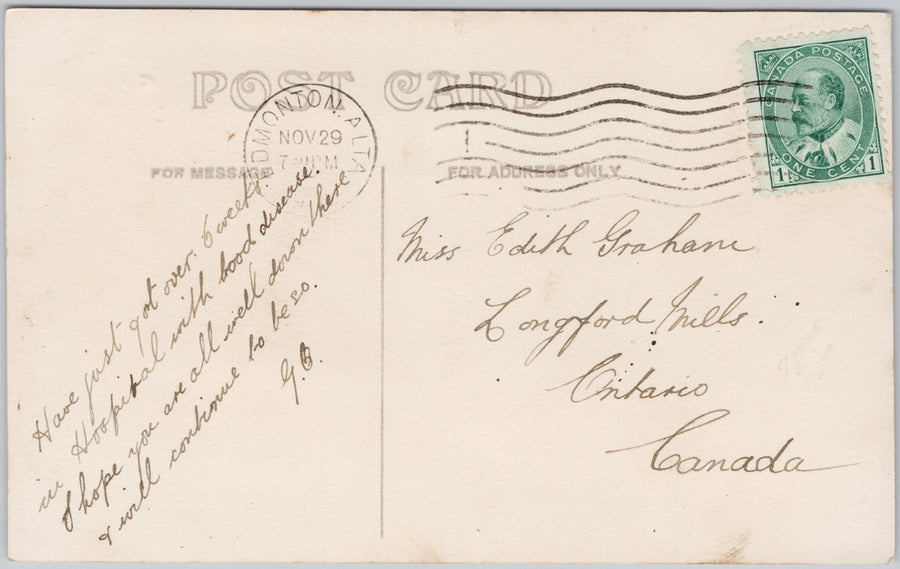 POST CARD
EDMONTON. ALTA
NOV 29
PM
CANADA POSTAGE
ONE CENT
1 1
FOR MESSAGE
FOR ADDRESS ONLY
Have just got over. 6 weeks
in Hospital with disease.
I hope you are all well down there
& will continue to be so.
G.B.
Miss Edith Graham
Longford Mills.
Ontario
Canada